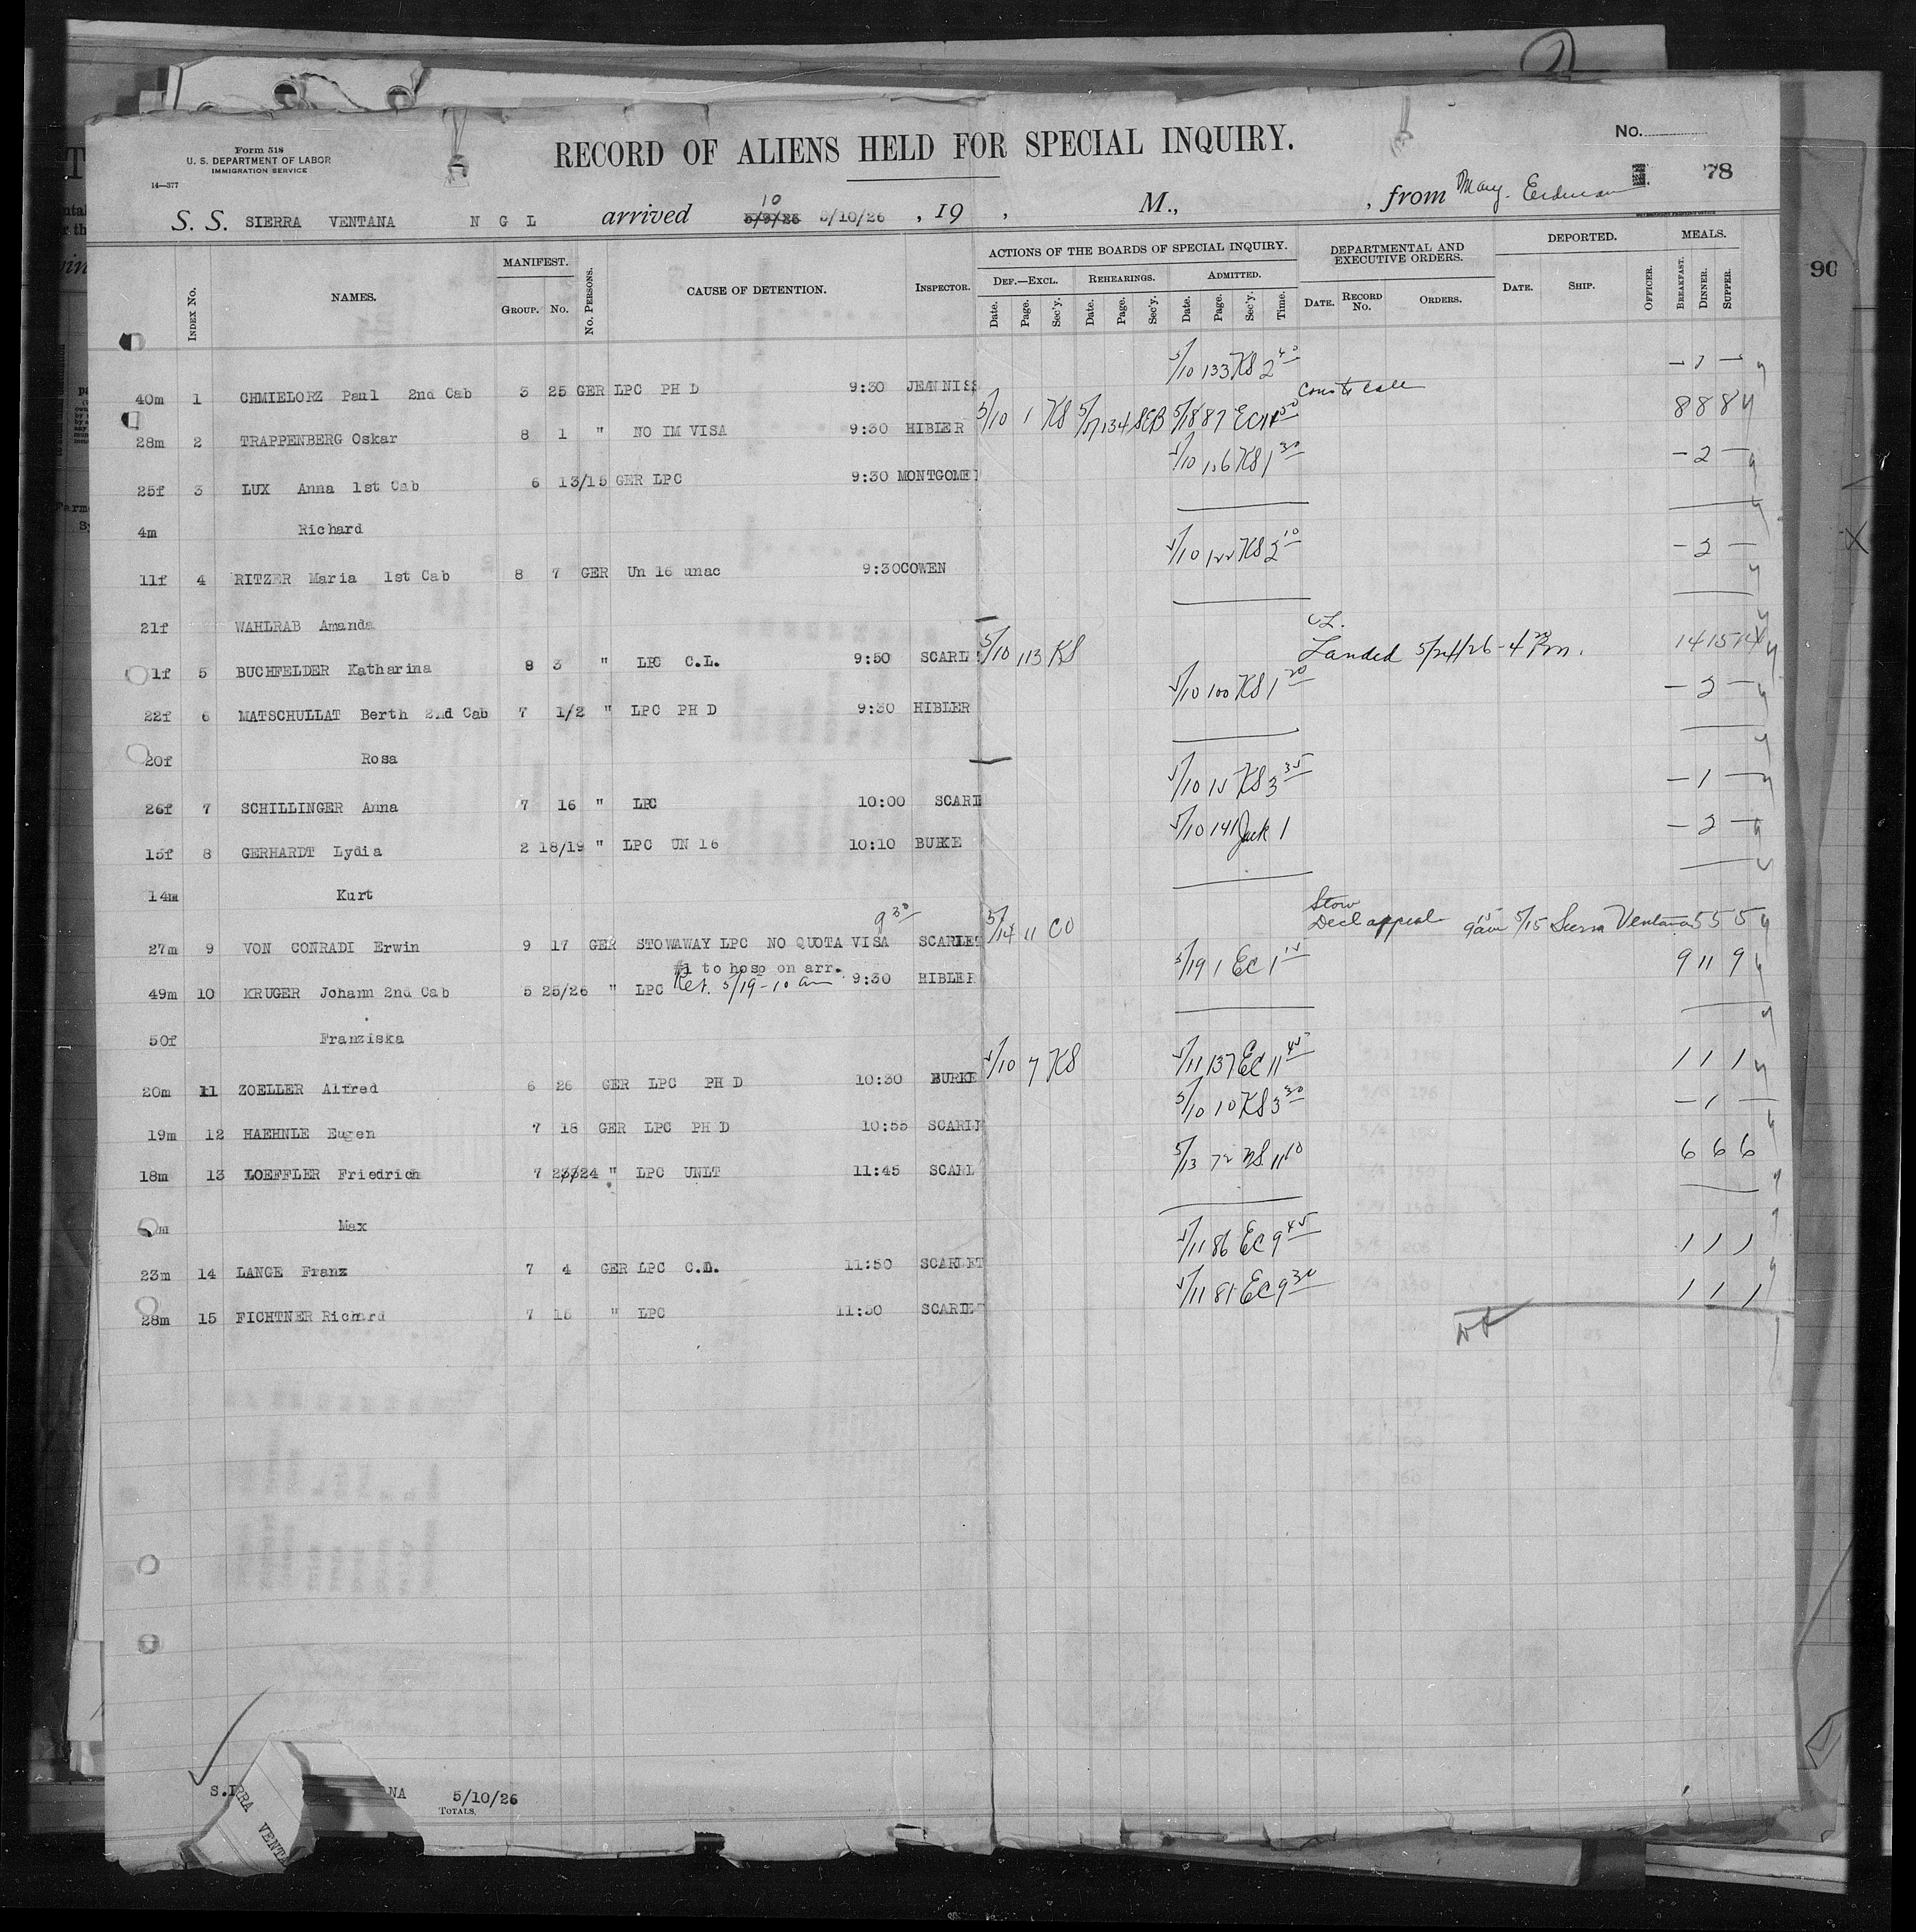 Form 518
U. S. DEPARTMENT OF LABOR
IMMIGRATION SERVICE
14—377
RECORD OF ALIENS HELD FOR SPECIAL INQUIRY.
No.
78
S. S. SIERRA VENTANA N G L arrived 5/9/26 10 5/10/26 , 19 , M., , from
INDEX No. NAMES. MANIFEST. GROUP. NO. No. PERSONS. CAUSE OF DETENTION. INSPECTOR. ACTIONS OF THE BOARDS OF SPECIAL INQUIRY. DEF.—EXCL. Date. Page. Sec'y. REHEARINGS. Date. Page. Sec'y. ADMITTED. Date. Page. Sec'y. Time. DEPARTMENTAL AND EXECUTIVE ORDERS. DATE. RECORD No. ORDERS. DEPORTED. DATE. SHIP. OFFICER. MEALS. BREAKFAST. DINNER. SUPPER.
40m 1 CHMIELORZ Paul 2nd Cab 3 25 GER LPC PH D 9:30 JEANNISS 5/10 133 KS 2 40 — 1 —
28m 2 TRAPPENBERG Oskar 8 1 " NO IM VISA 9:30 HIBLER 5/10 1 KS 5/17 134 SEB 5/18 87 EC 8 8 8
25f 3 LUX Anna 1st Cab 6 13/15 GER LPC 9:30 MONTGOME 5/10 KS 1 30 — 2 —
4m Richard
11f 4 RITZER Maria 1st Cab 8 7 GER Un 16 unac 9:30 COWEN 5/10 122 KS 2 10 — 2 —
21f WAHLRAB Amanda
1f 5 BUCHFELDER Katharina 8 3 " LPC C.L. 9:50 SCARL 5/10 113 KS CL. Landed 5/24/26 - 4 Pm. 14 15 14
22f 6 MATSCHULLAT Berth 2nd Cab 7 1/2 " LPC PH D 9:30 HIBLER 5/10 100 KS 1 20 — 2 —
20f Rosa
26f 7 SCHILLINGER Anna 7 16 " LPC 10:00 SCARL 5/10 15 KS 3 35 — 1 —
15f 8 GERHARDT Lydia 2 18/19 " LPC UN 16 10:10 BURKE 5/10 141 Jack 1 — 2 —
14m Kurt
27m 9 VON CONRADI Erwin 9 17 GER STOWAWAY LPC NO QUOTA VISA 9 30 SCARLET 5/14 11 CO Stow Decl appeal 9 15 am 5/15 Sierra Ventana 5 5 5
#1 to hosp on arr.
49m 10 KRUGER Johann 2nd Cab 5 25/26 " LPC Ret. 5/19 - 10 am 9:30 HIBLER 5/19 1 EC 1 15 9 11 9
50f Franziska
20m 11 ZOELLER Alfred 6 26 GER LPC PH D 10:30 BURKE 5/10 7 KS 5/11 137 EC 11 45 1 1 1
19m 12 HAEHNLE Eugen 7 18 GER LPC PH D 10:55 SCARL 5/10 10 KS 3 30 — 1 —
18m 13 LOEFFLER Friedrich 7 23/24 " LPC UNLT 11:45 SCARL 5/13 72 11 10 6 6 6
m Max
23m 14 LANGE Franz 7 4 GER LPC C.L. 11:50 SCARLET 5/11 86 EC 9 45 1 1 1
28m 15 FICHTNER Richard 7 15 " LPC 11:50 SCARLET 5/11 81 EC 9 30 1 1 1
S.I RRA VENTA NA 5/10/26
TOTALS.
90